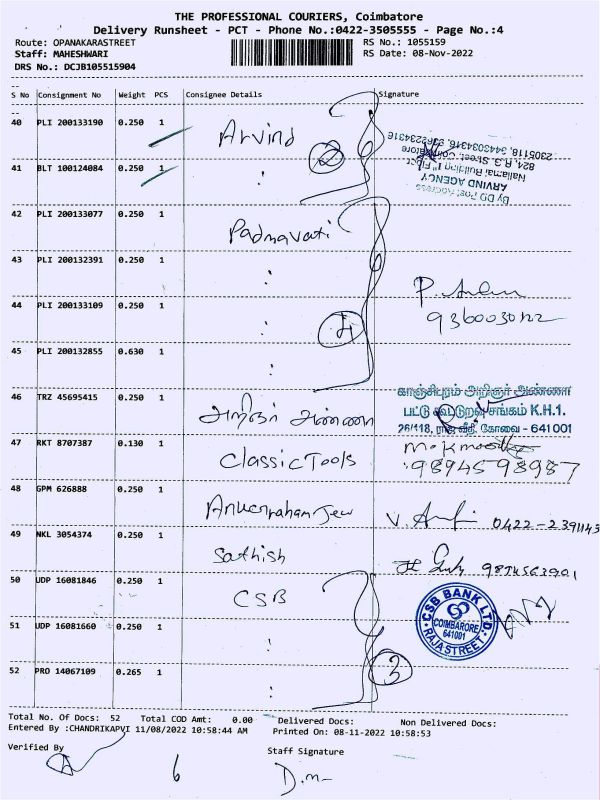 THE PROFESSIONAL COURIERS, Coimbatore
Delivery Runsheet - PCT - Phone No.:0422-3505555 - Page No.:4
Route: OPANAKARASTREET RS No.: 1055159
Staff: MAHESHWARI RS Date: 08-Nov-2022
DRS No.: DCJB105515904
S No Consignment No Weight PCS Consignee Details Signature
40 PLI 200133190 0.250 1 Arvind
2305118, 3443034316,
824, R.G. Street, Coimbatore
Nallamai Building 1st Floor
ARVIND AGENCY
By DD Post Address
41 BLT 100124084 0.250 1 "
2
42 PLI 200133077 0.250 1 Padmavati
43 PLI 200132391 0.250 1 "
44 PLI 200133109 0.250 1 "
4
45 PLI 200132855 0.630 1 "
46 TRZ 45695415 0.250 1 அறிஞர் அண்ணா
காஞ்சிபுரம் அறிஞர் அண்ணா
பட்டு கூட்டுறவு சங்கம் K.H.1.
26/118, ராஜ வீதி, கோவை - 641 001
47 RKT 8707387 0.130 1 Classic Tools 9894598987
48 GPM 626888 0.250 1 0422-2391143
49 NKL 3054374 0.250 1 Sathish
50 UDP 16081846 0.250 1 CSB
CSB BANK LTD.
COIMBATORE
641001
RAJA STREET
51 UDP 16081660 0.250 1 "
3
52 PRO 14067109 0.265 1 "
Total No. Of Docs: 52 Total COD Amt: 0.00 Delivered Docs: Non Delivered Docs:
Entered By :CHANDRIKAPVI 11/08/2022 10:58:44 AM Printed On: 08-11-2022 10:58:53
Verified By Staff Signature
6